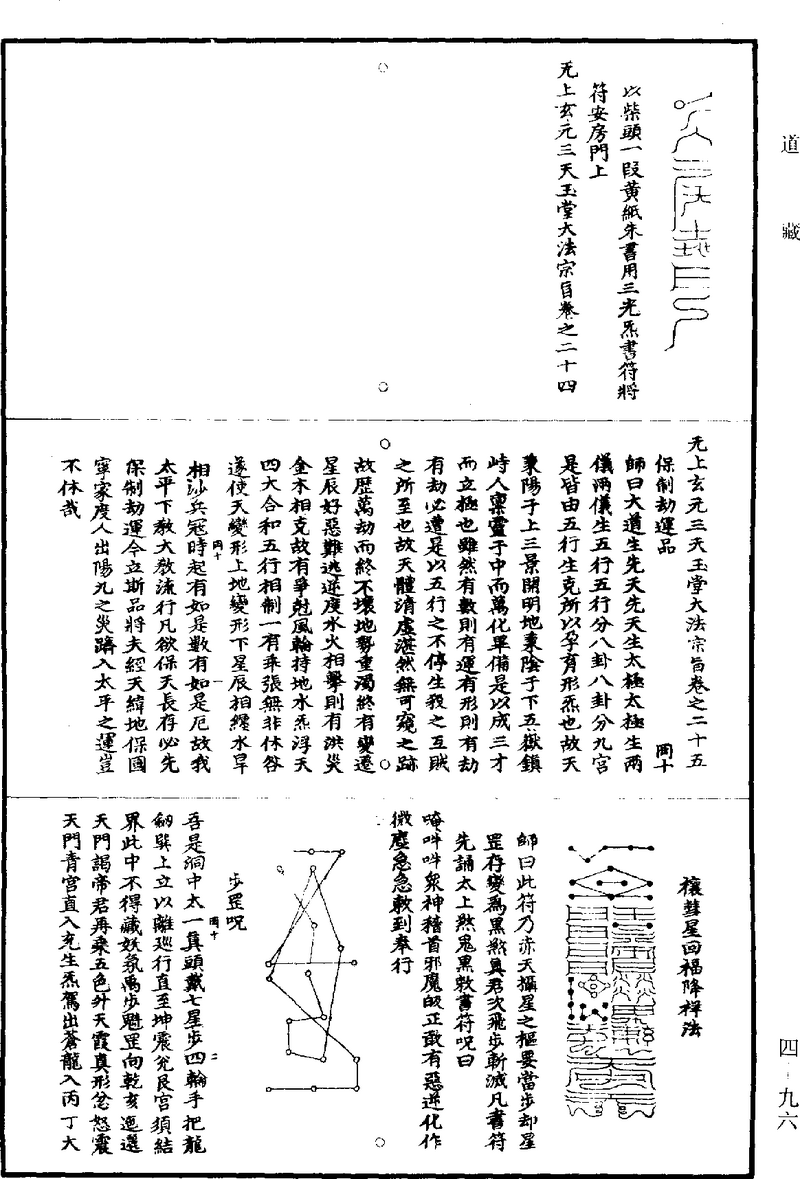 道藏
以柴頭一段黃紙朱書用三光炁書符將
符安房門上
无上玄元三天玉堂大法宗旨卷之二十四
无上玄元三天玉堂大法宗旨卷之二十五
岡十
保制劫運品
師曰大道生先天先天生太極太極生兩
儀兩儀生五行五行分八卦八卦分九宮
是皆由五行生克所以孕育形炁也故天
秉陽于上三景開明地秉陰于下五嶽鎮
峙人稟靈于中而萬化畢備是以成三才
而立極也雖然有數則有運有形則有劫
有劫必遭是以五行之不停生殺之互賊
之所至也故天體清虛湛然無可窺之跡
故歷萬劫而終不壞地勢重濁終有變遷
星辰好惡難逃逆度水火相擊則有洪災
金木相克故有爭尅風輪持地水炁浮天
四大合和五行相制一有乖張無非休咎
遂使天變形上地變形下星辰相纏水旱
岡十
一
相沴兵冦時起有如是數有如是厄故我
太平下教大敎流行凡欲保天長存必先
保制劫運今立斯品將夫經天緯地保國
寧家度人出陽九之災躋入太平之運豈
不休哉
禳彗星回福降祥法
師曰此符乃赤天攝星之樞要當步却星
罡存變爲黑煞真君次飛步斬滅凡書符
先誦太上煞鬼黑敕書符呪曰
唵吽吽衆神稽首邪魔皈正敢有惡逆化作
微塵急急敕到奉行
步罡呪
岡十
二
吾是洞中太一真頭戴七星步四輪手把龍
劒巽上立以離巡行直至坤震兊艮宮須結
界此中不得藏妖氛禹步魁罡向乾亥迤邐
天門謁帝君再乘五色升天霞真形忿怒震
天門青宮直入充生炁駕出蒼龍入丙丁大
四－九六